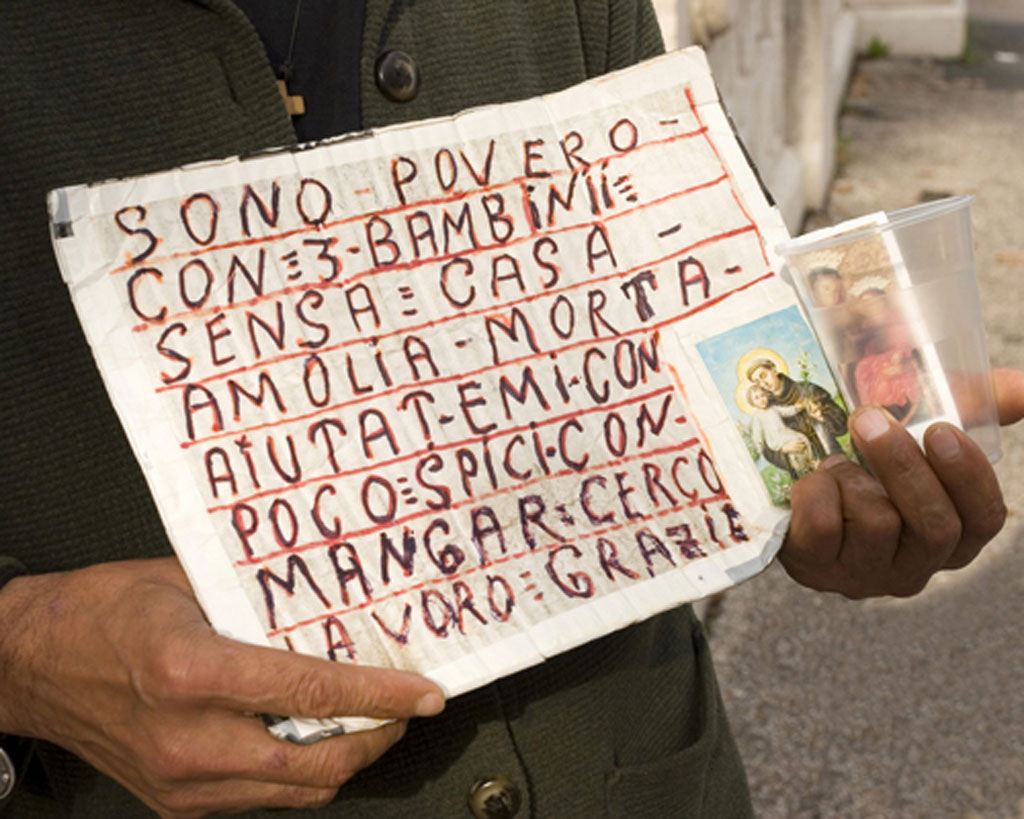 SONO - POVERO -
CON = 3 - BAMBINII =
SENSA = CASA -
AMOLIA - MORTA -
AIUTAT - EMI - CON
POCO = SPICI - CON -
MANGAR = CERCO
LAVORO = GRAZIE